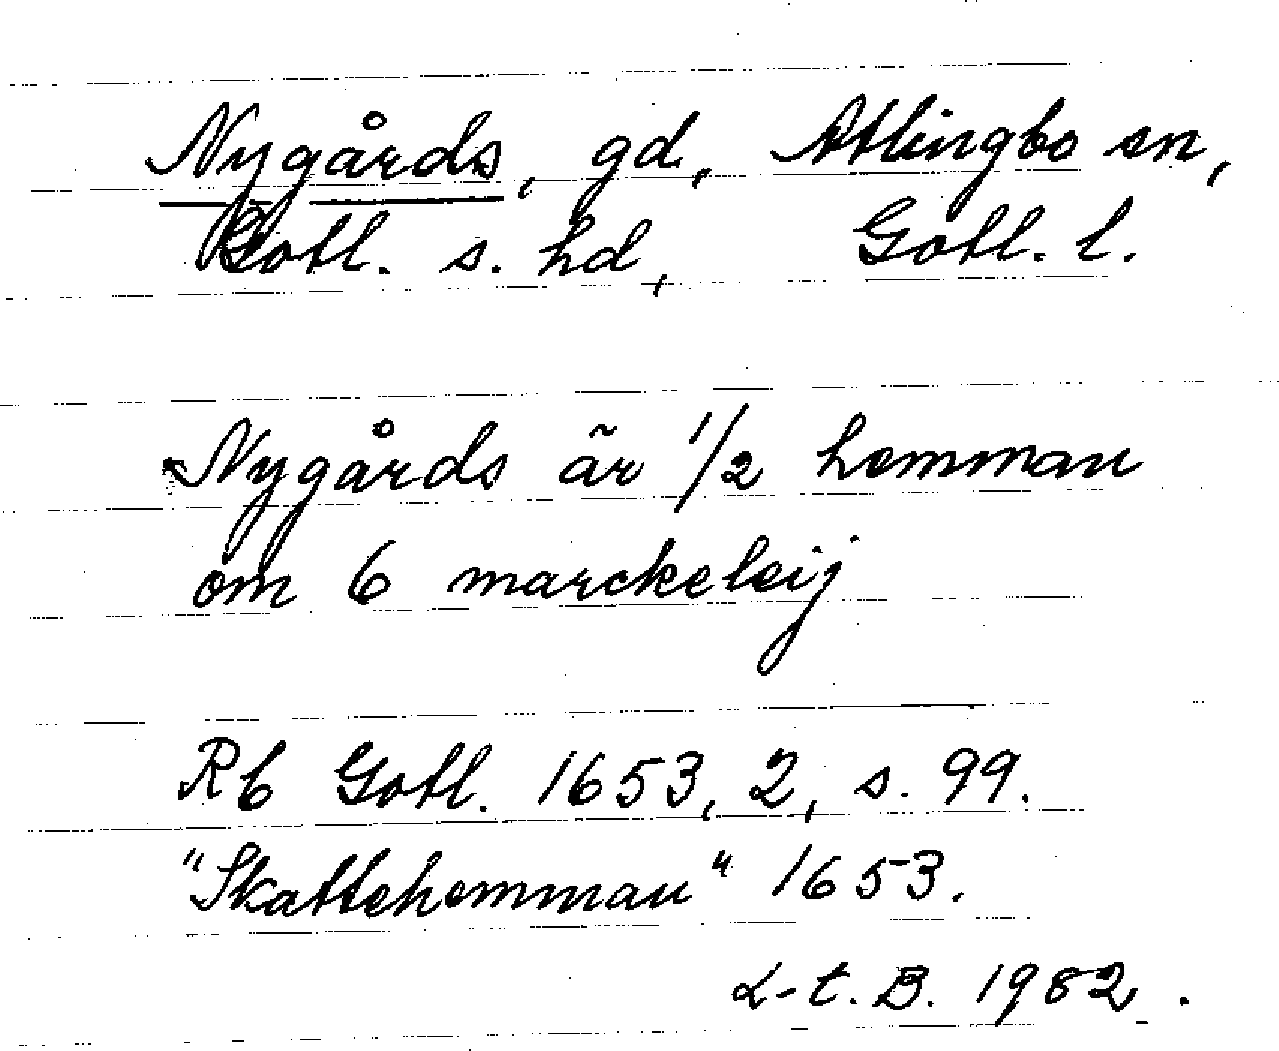 Nygårds, gd, Atlingbo sn,
Gotl. s. hd, Gotl. l.
Nygårds är 1/2 hemman
om 6 marckeleij
Rb Gotl. 1653, 2, s. 99.
"Skattehemman" 1653.
L-t. B. 1982.